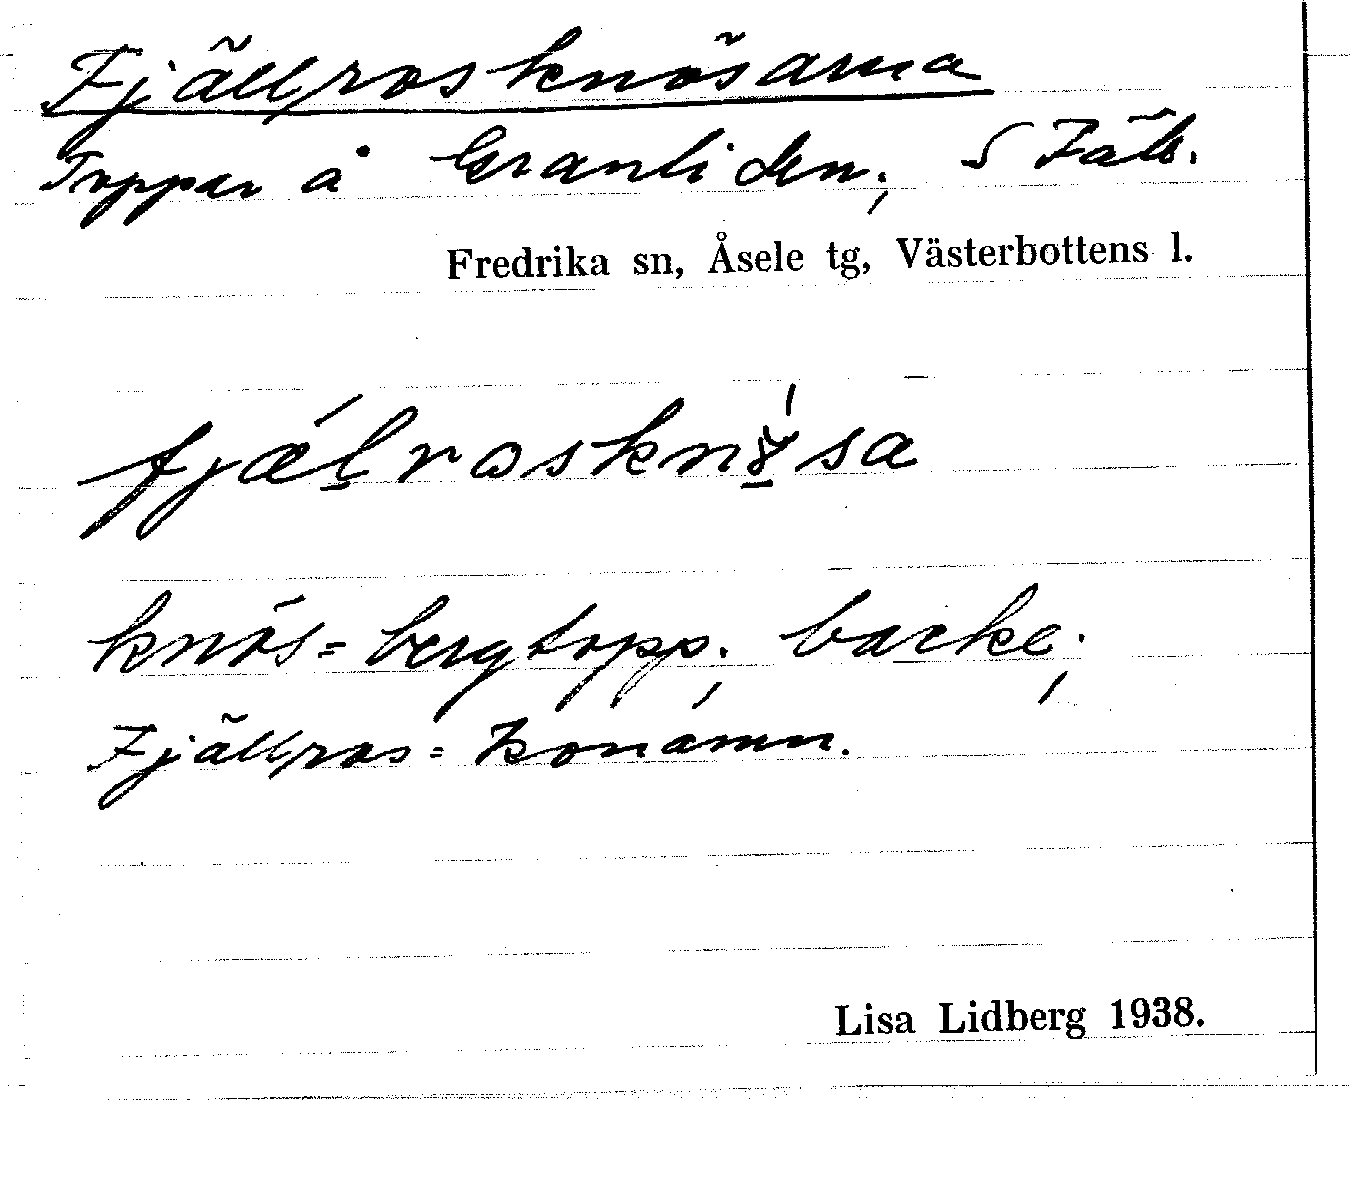 Fjällrosknösarna
Toppar å Granliden; S Fäb.
Fredrika sn, Åsele tg, Västerbottens l.
knös = bergtopp; backe;
Fjällros = konamn.
Lisa Lidberg 1938.